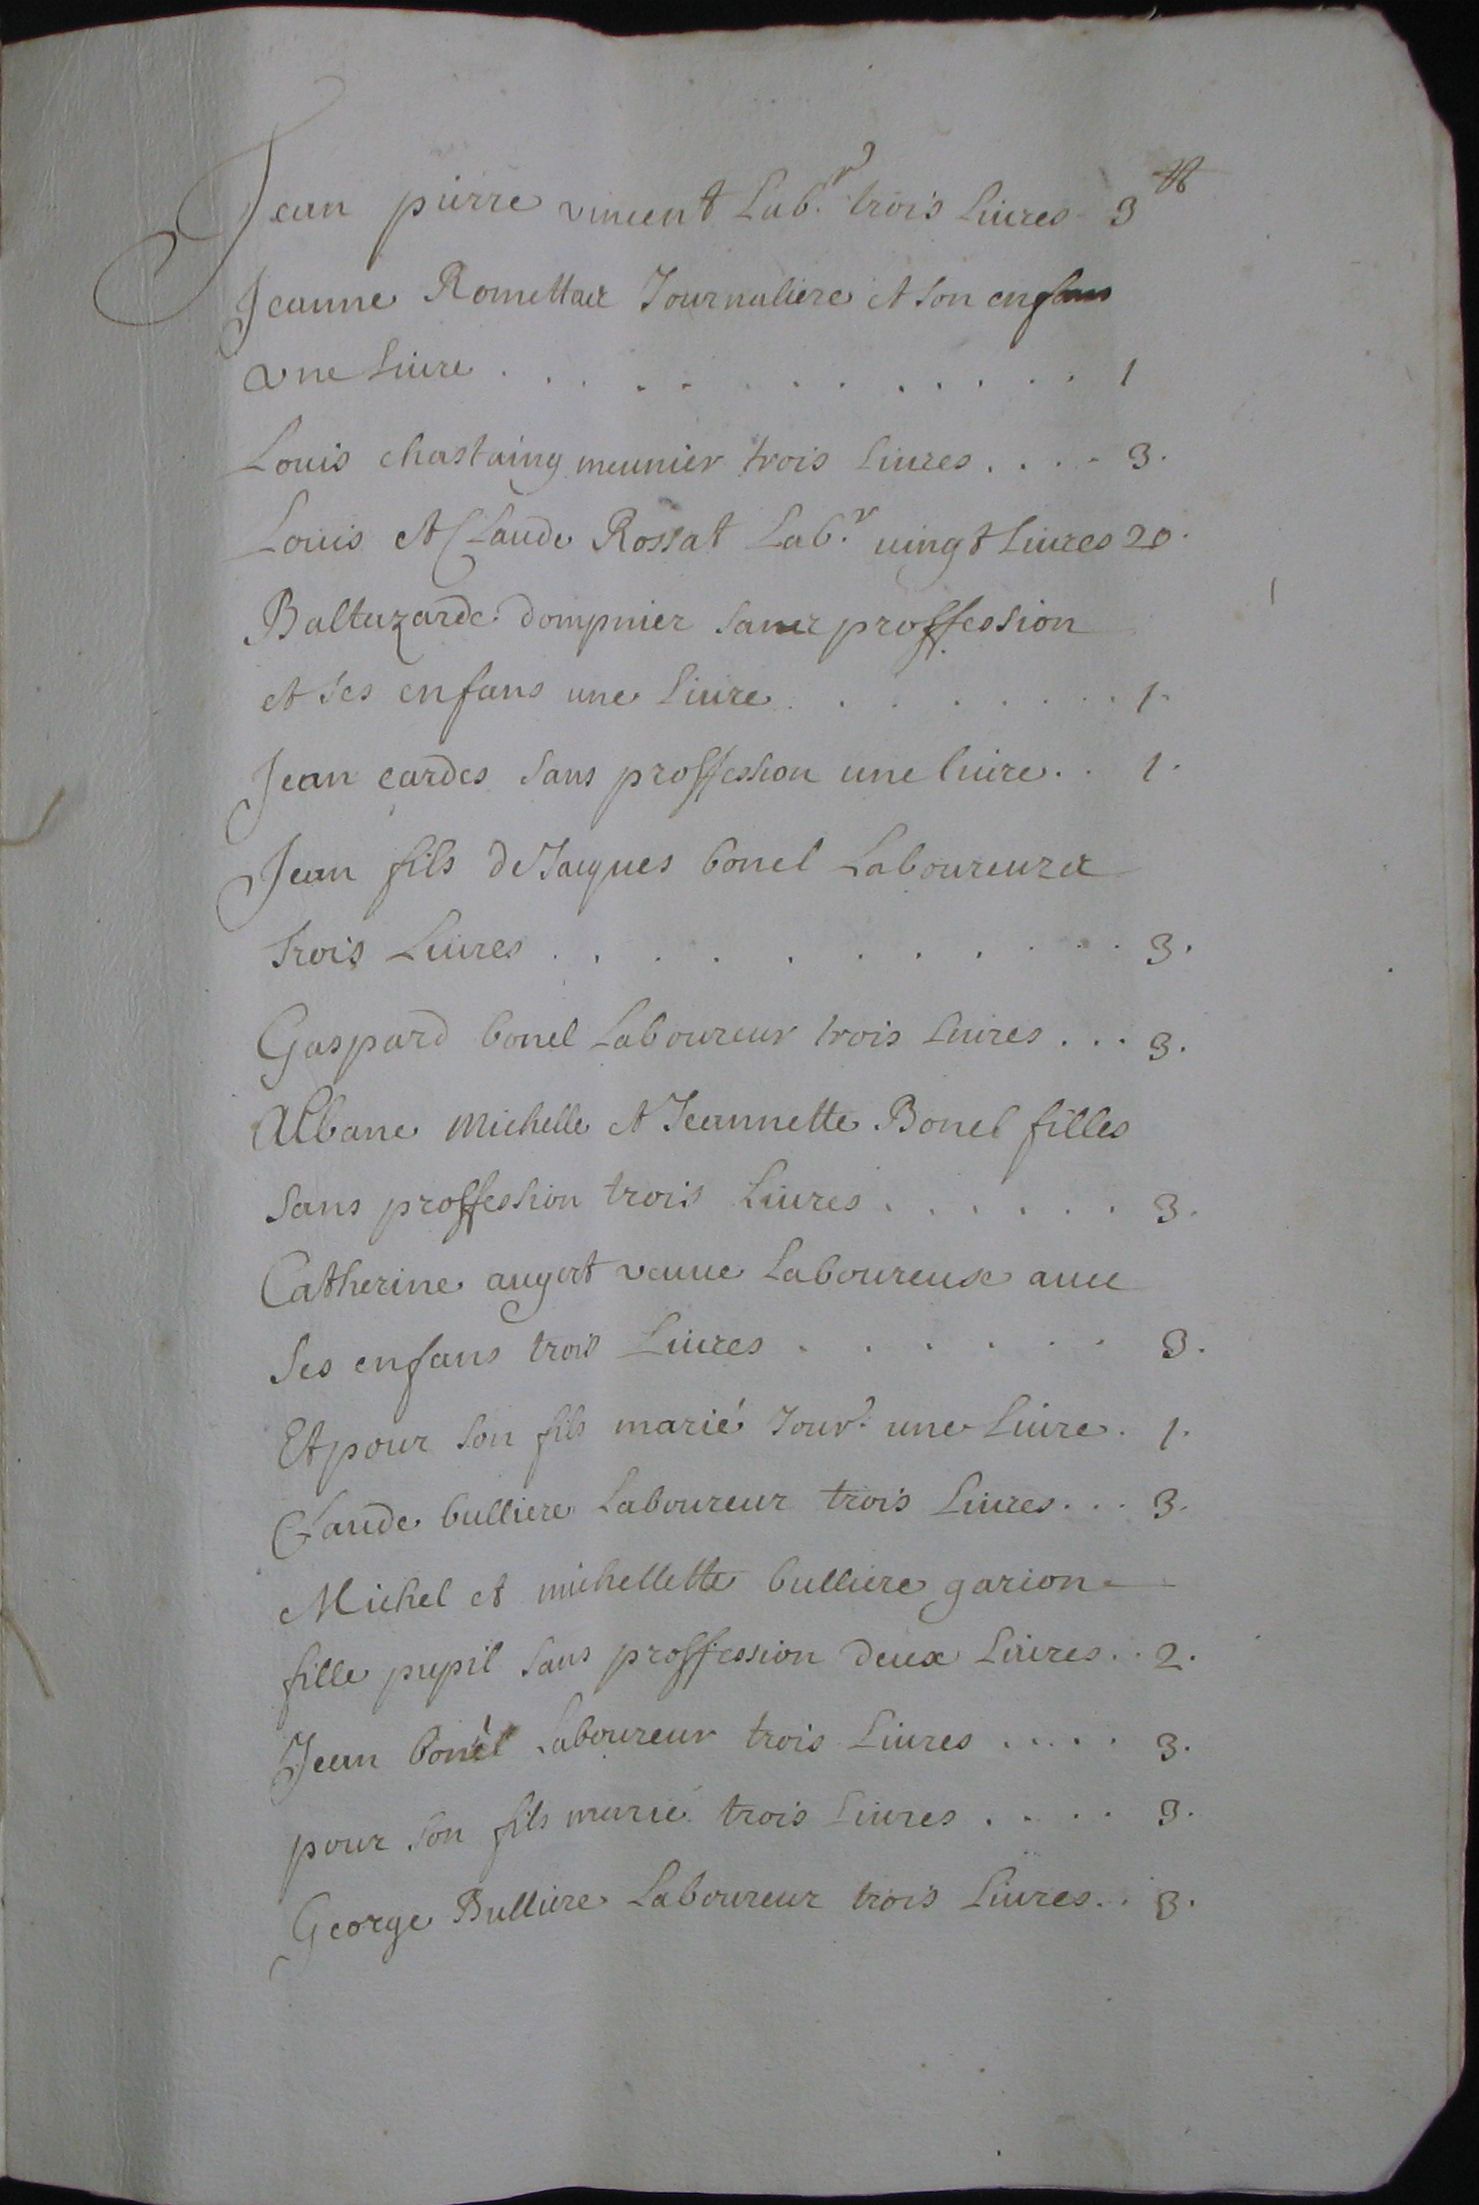 Jean pierre vincent Lab.r trois Liures 3 ₶
Jeanne Romettaz Journaliere et son enfans
une Liure . . . . . . . . . . . . 1
Louis chastaing meunier trois Liures . . . . 3.
Louis et Claude Rossat Lab.r uingt Liures 20.
Baltazarde dompnier sans proffession
et ses enfans une Liure . . . . . . . . 1.
Jean cardes sans proffession une liure . . 1.
Jean fils de Jacques bonel Laboureur
trois Liures . . . . . . . . . . . 3.
Gaspard bonel Laboureur trois Liures . . . 3.
Albane Michelle et Jeannette Bonel filles
sans proffession trois Liures . . . . . . 3.
Catherine augert veuue Laboureuse auec
ses enfans trois Liures . . . . . . 3.
Et pour son fils marié Jour.r une Liure . 1.
Claude bulliere Laboureur trois Liures . . . 3.
Michel et michellette bulliere garion
fille pupil sans proffession deux Liures . . 2.
Jean bonel Laboureur trois Liures . . . . . 3.
pour son fils marié trois Liures . . . . 3.
George Bulliere Laboureur trois Liures . . 3.